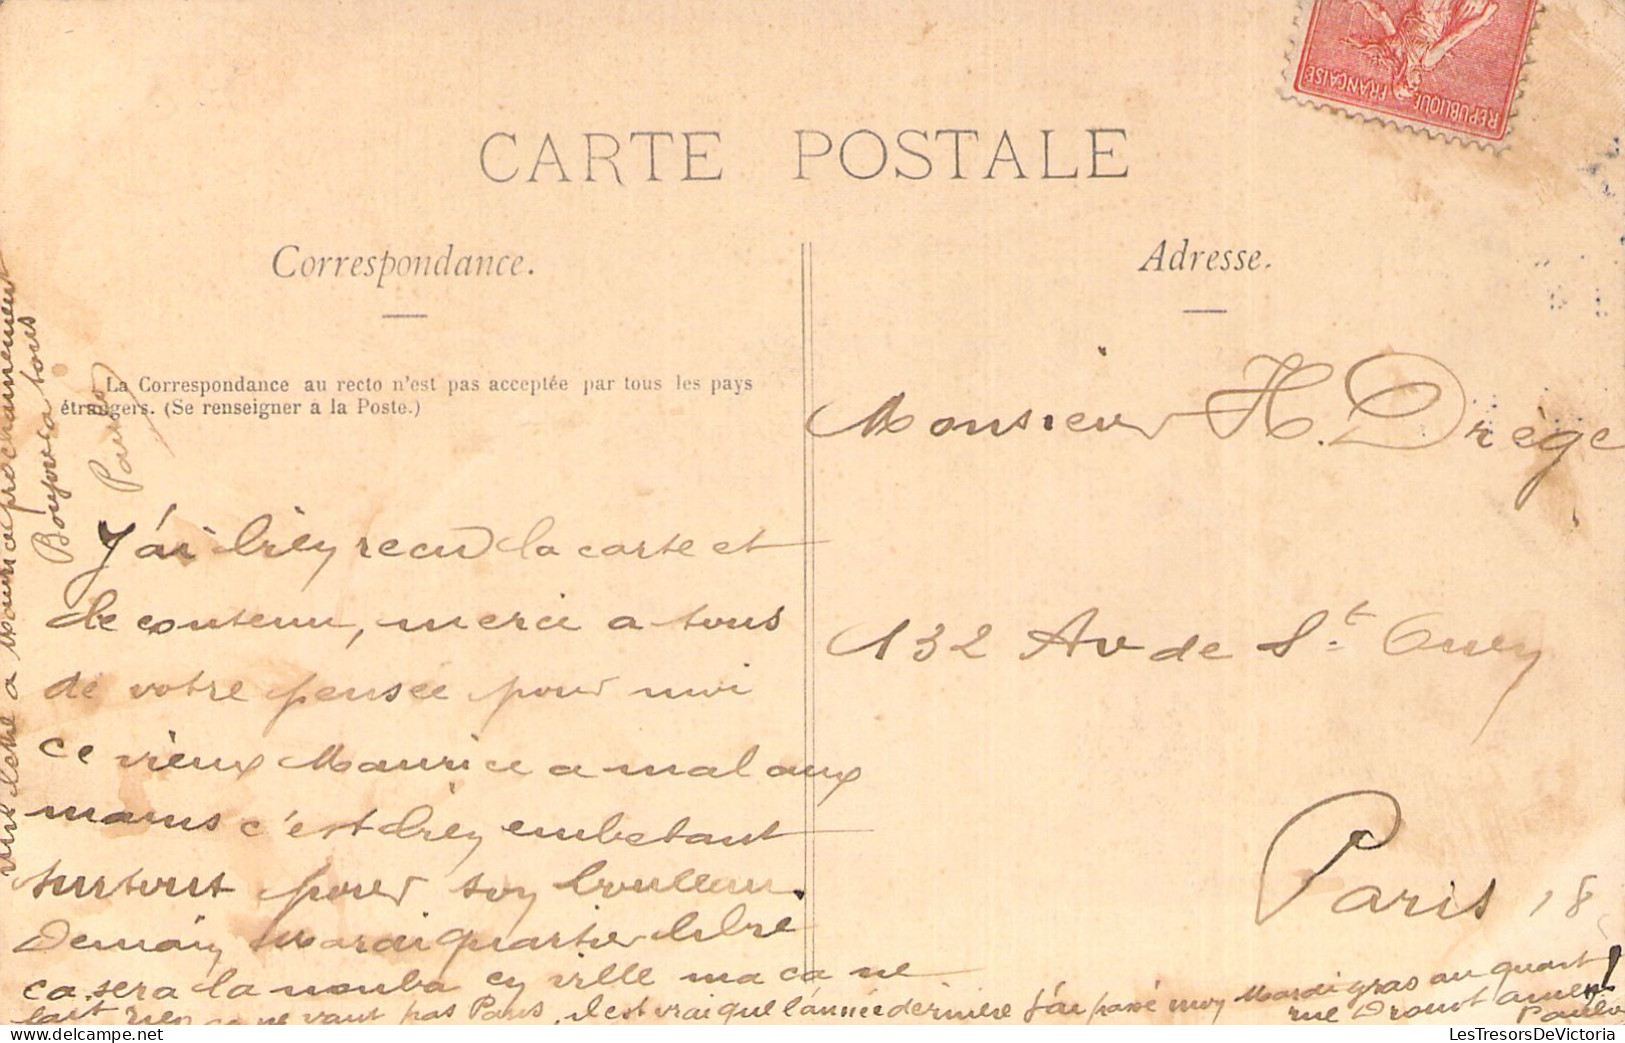 REPUBLIQUE FRANÇAISE
CARTE POSTALE
Correspondance.
Adresse.
La Correspondance au recto n'est pas acceptée par tous les pays
étrangers. (Se renseigner à la Poste.)
Monsieur H. Drège
132 Av de St Ouen
Paris 18
J'ai bien recu la carte et
le contenu, merci a tous
de votre pensée pour moi
ce vieux Maurice a mal aux
mains c'est bien embetant
surtout pour son bouleau.
Demain Mardi quartier libre
ca sera la nouba en ville ma ca ne
fait rien ca ne vaut pas Paris, il est vrai que l'année dernière j'ai passé mon Mardi gras au quart !
rue Drouot amen
une lettre a Maurice prochainement
Bonjour a tous
LesTresorsDeVictoria